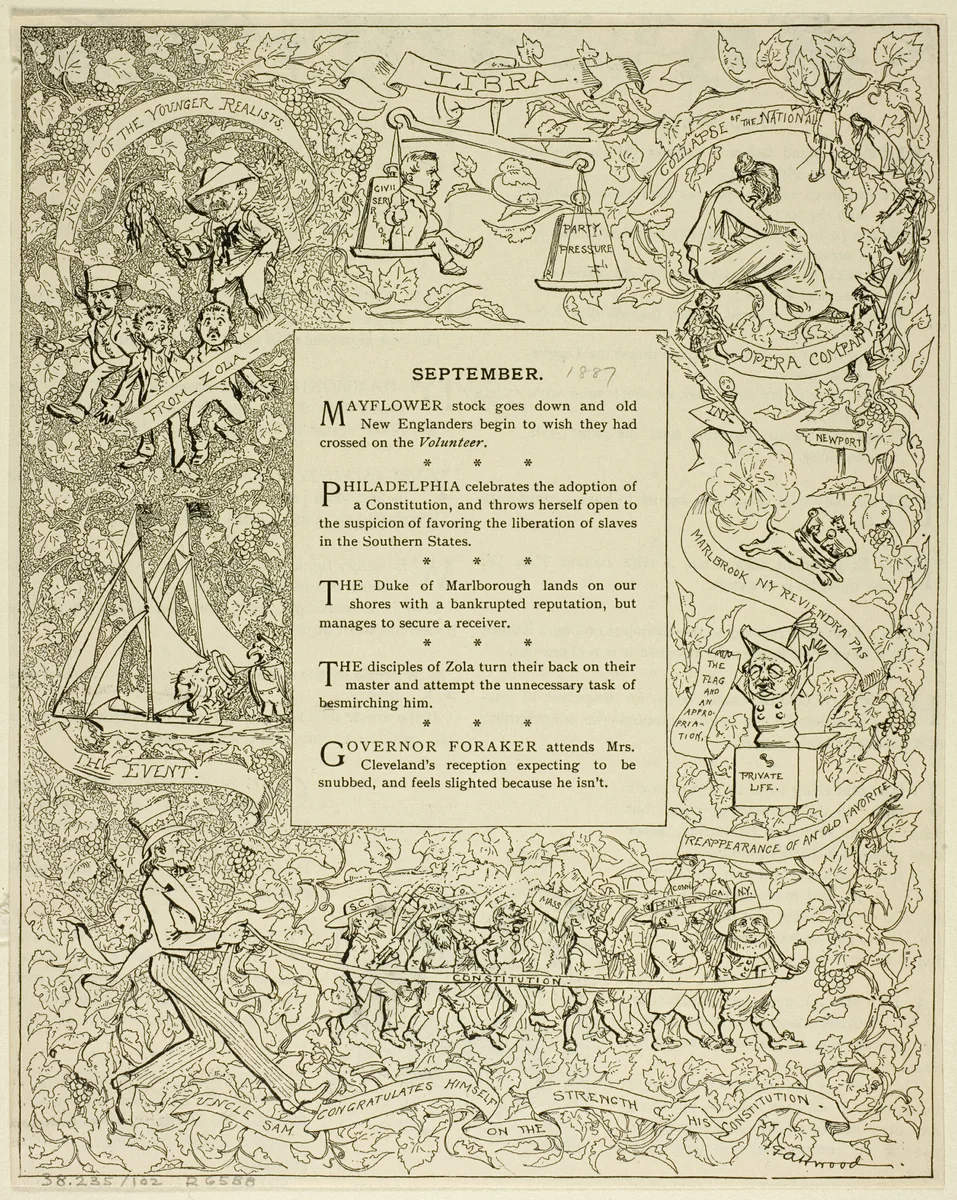 LIBRA.
REVOLT OF THE YOUNGER REALISTS
FROM ZOLA
CIVIL
SERV
REFOR
PARTY
PRESSURE
COLLAPSE OF THE NATIONAL
OPERA COMPANY
SEPTEMBER. 1887
MAYFLOWER stock goes down and old
New Englanders begin to wish they had
crossed on the Volunteer.
* * *
PHILADELPHIA celebrates the adoption of
a Constitution, and throws herself open to
the suspicion of favoring the liberation of slaves
in the Southern States.
* * *
THE Duke of Marlborough lands on our
shores with a bankrupted reputation, but
manages to secure a receiver.
* * *
THE disciples of Zola turn their back on their
master and attempt the unnecessary task of
besmirching him.
* * *
GOVERNOR FORAKER attends Mrs.
Cleveland's reception expecting to be
snubbed, and feels slighted because he isn't.
INK
NEWPORT
MARLBROOK N'Y REVIENDRA PAS
THE
FLAG
AND
AN
APPRO-
PRIA-
TION.
PRIVATE
LIFE.
REAPPEARANCE OF AN OLD FAVORITE
THE EVENT.
S.C.
MASS
PENN.
CONN.
GA.
N.Y.
CONSTITUTION
UNCLE SAM CONGRATULATES HIMSELF ON THE STRENGTH OF HIS CONSTITUTION.
F. Attwood
38.235/102 R6558